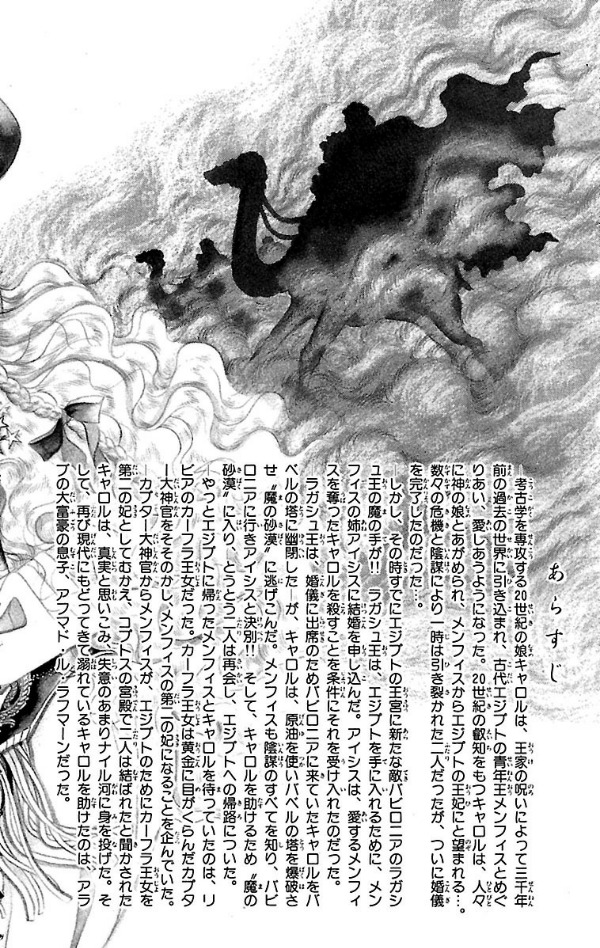 あらすじ
―考古学を専攻する20世紀の娘キャロルは、王家の呪いによって三千年
前の過去の世界に引き込まれ、古代エジプトの青年王メンフィスとめぐ
りあい、愛しあうようになった。20世紀の叡知をもつキャロルは、人々
に神の娘とあがめられ、メンフィスからエジプトの王妃にと望まれる…。
数々の危機と陰謀により一時は引き裂かれた二人だったが、ついに婚儀
を完了したのだった…。
―しかし、その時すでにエジプトの王宮に新たな敵バビロニアのラガシ
ュ王の魔の手が!! ラガシュ王は、エジプトを手に入れるために、メン
フィスの姉アイシスに結婚を申し込んだ。アイシスは、愛するメンフィ
スを奪ったキャロルを殺すことを条件にそれを受け入れたのだった。
―ラガシュ王は、婚儀に出席のためバビロニアに来ていたキャロルをバ
ベルの塔に幽閉した―が、キャロルは、原油を使いバベルの塔を爆破さ
せ〝魔の砂漠〟に逃げこんだ。メンフィスも陰謀のすべてを知り、バビ
ロニアに行きアイシスと決別!! そして、キャロルを助けるため〝魔の
砂漠〟に入り、とうとう二人は再会し、エジプトへの帰路についた。
―やっとエジプトに帰ったメンフィスとキャロルを待っていたのは、リ
ビアのカーフラ王女だった。カーフラ王女は黄金に目がくらんだカプタ
ー大神官をそそのかし、メンフィスの第二の妃になることを企んでいた。
―カプター大神官からメンフィスが、エジプトのためにカーフラ王女を
第二の妃としてむかえ、コプトスの宮殿で二人は結ばれたと聞かされた
キャロルは、真実と思いこみ、失意のあまりナイル河に身を投げた。そ
して、再び現代にもどってきて溺れているキャロルを助けたのは、アラ
ブの大富豪の息子、アフマド・ル・ラフマーンだった。